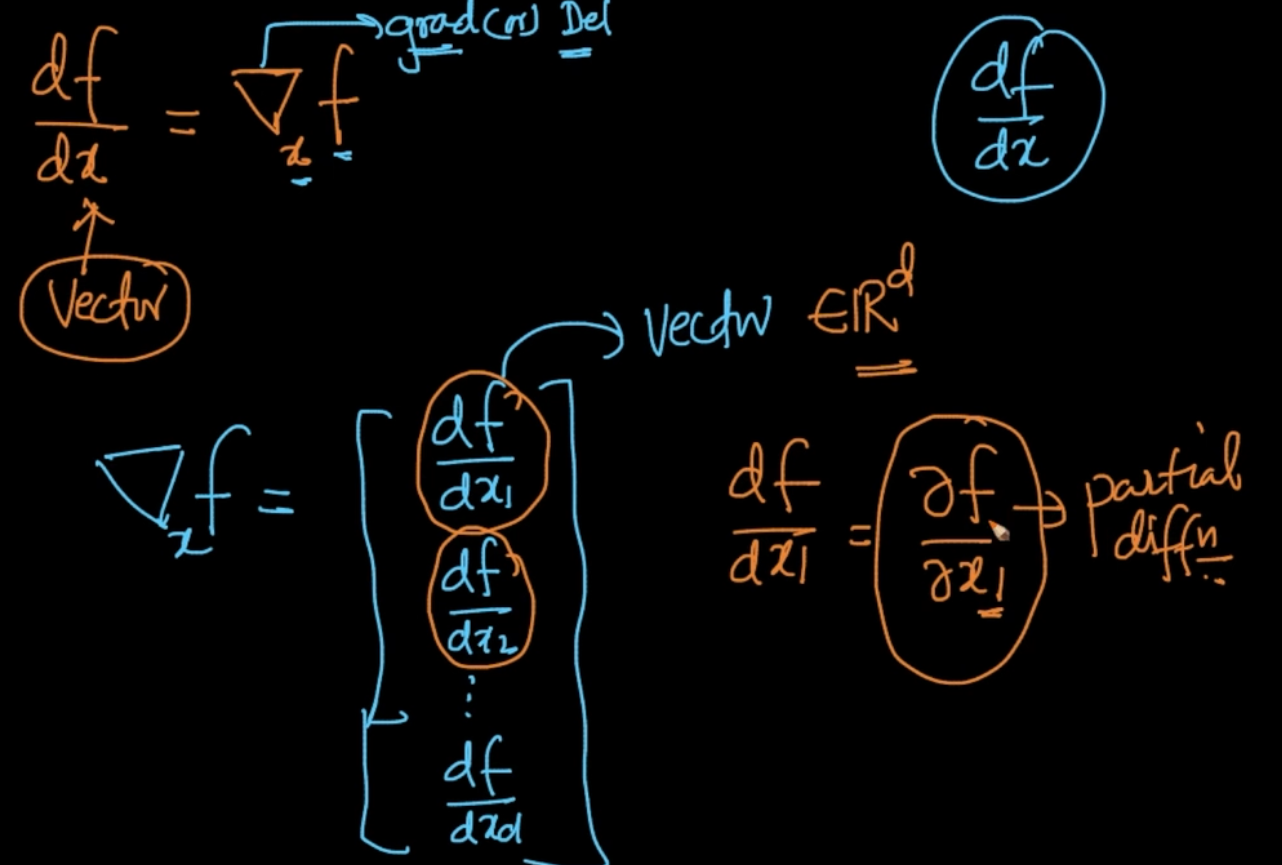 df/dx = ∇x f → grad (or) Del
df/dx
Vector
→ Vector ∈ ℝ^d
∇x f = [ df/dx1
df/dx2
⋮
df/dxd ]
df/dx1 = ∂f/∂x1 → partial diffn